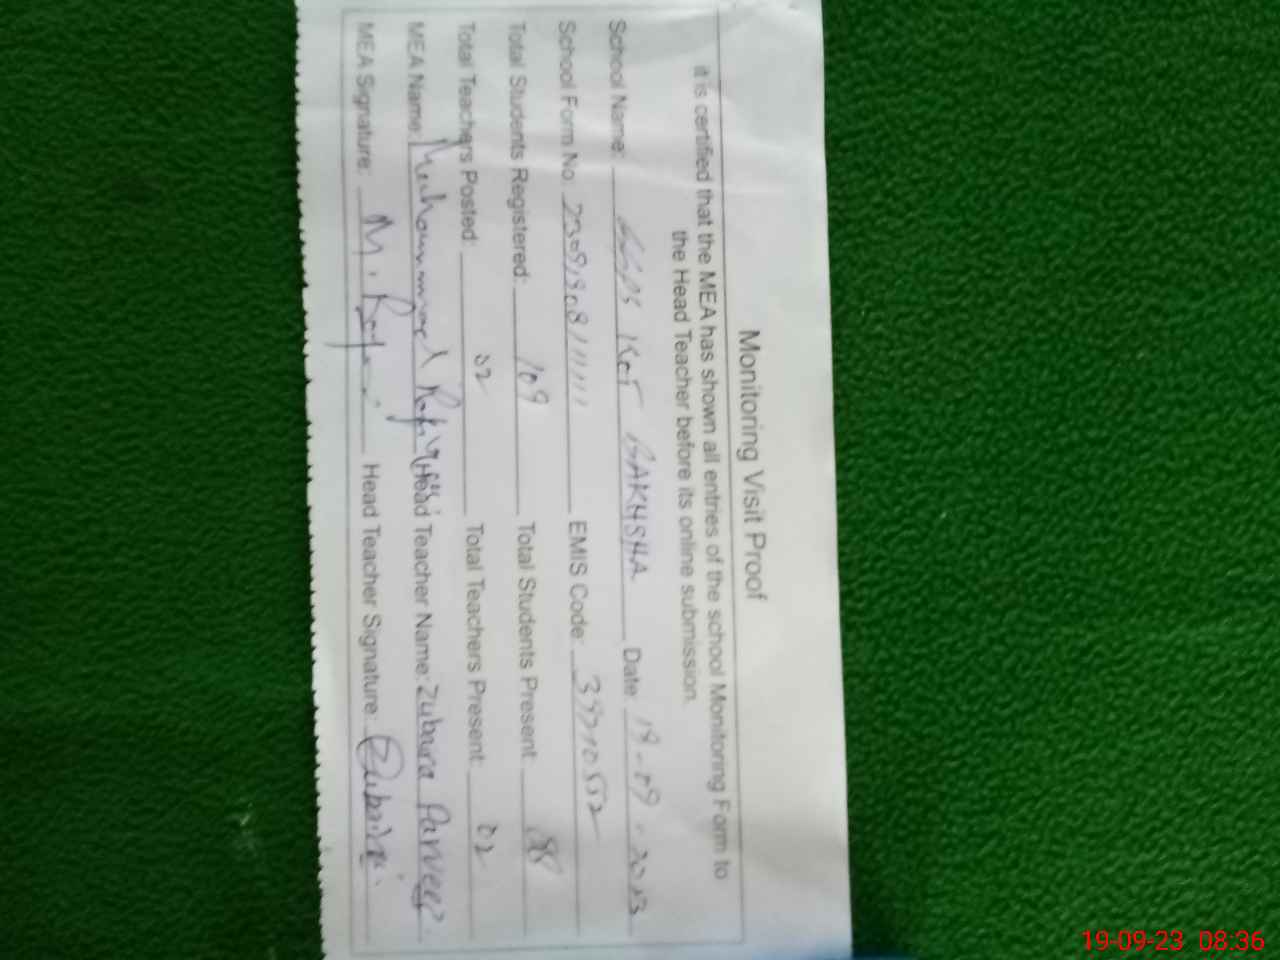 Monitoring Visit Proof
it is certified that the MEA has shown all entries of the school Monitoring Form to
the Head Teacher before its online submission.
School Name: GGPS KOT BAKHSHA Date: 19-09-2023
School Form No: EMIS Code:
Total Students Registered: 109 Total Students Present: 98
Total Teachers Posted: 02 Total Teachers Present: 02
MEA Name: Muhammad Head Teacher Name: Zubaira Parveen
MEA Signature: M. Head Teacher Signature: Zubaira
19-09-23 08:36